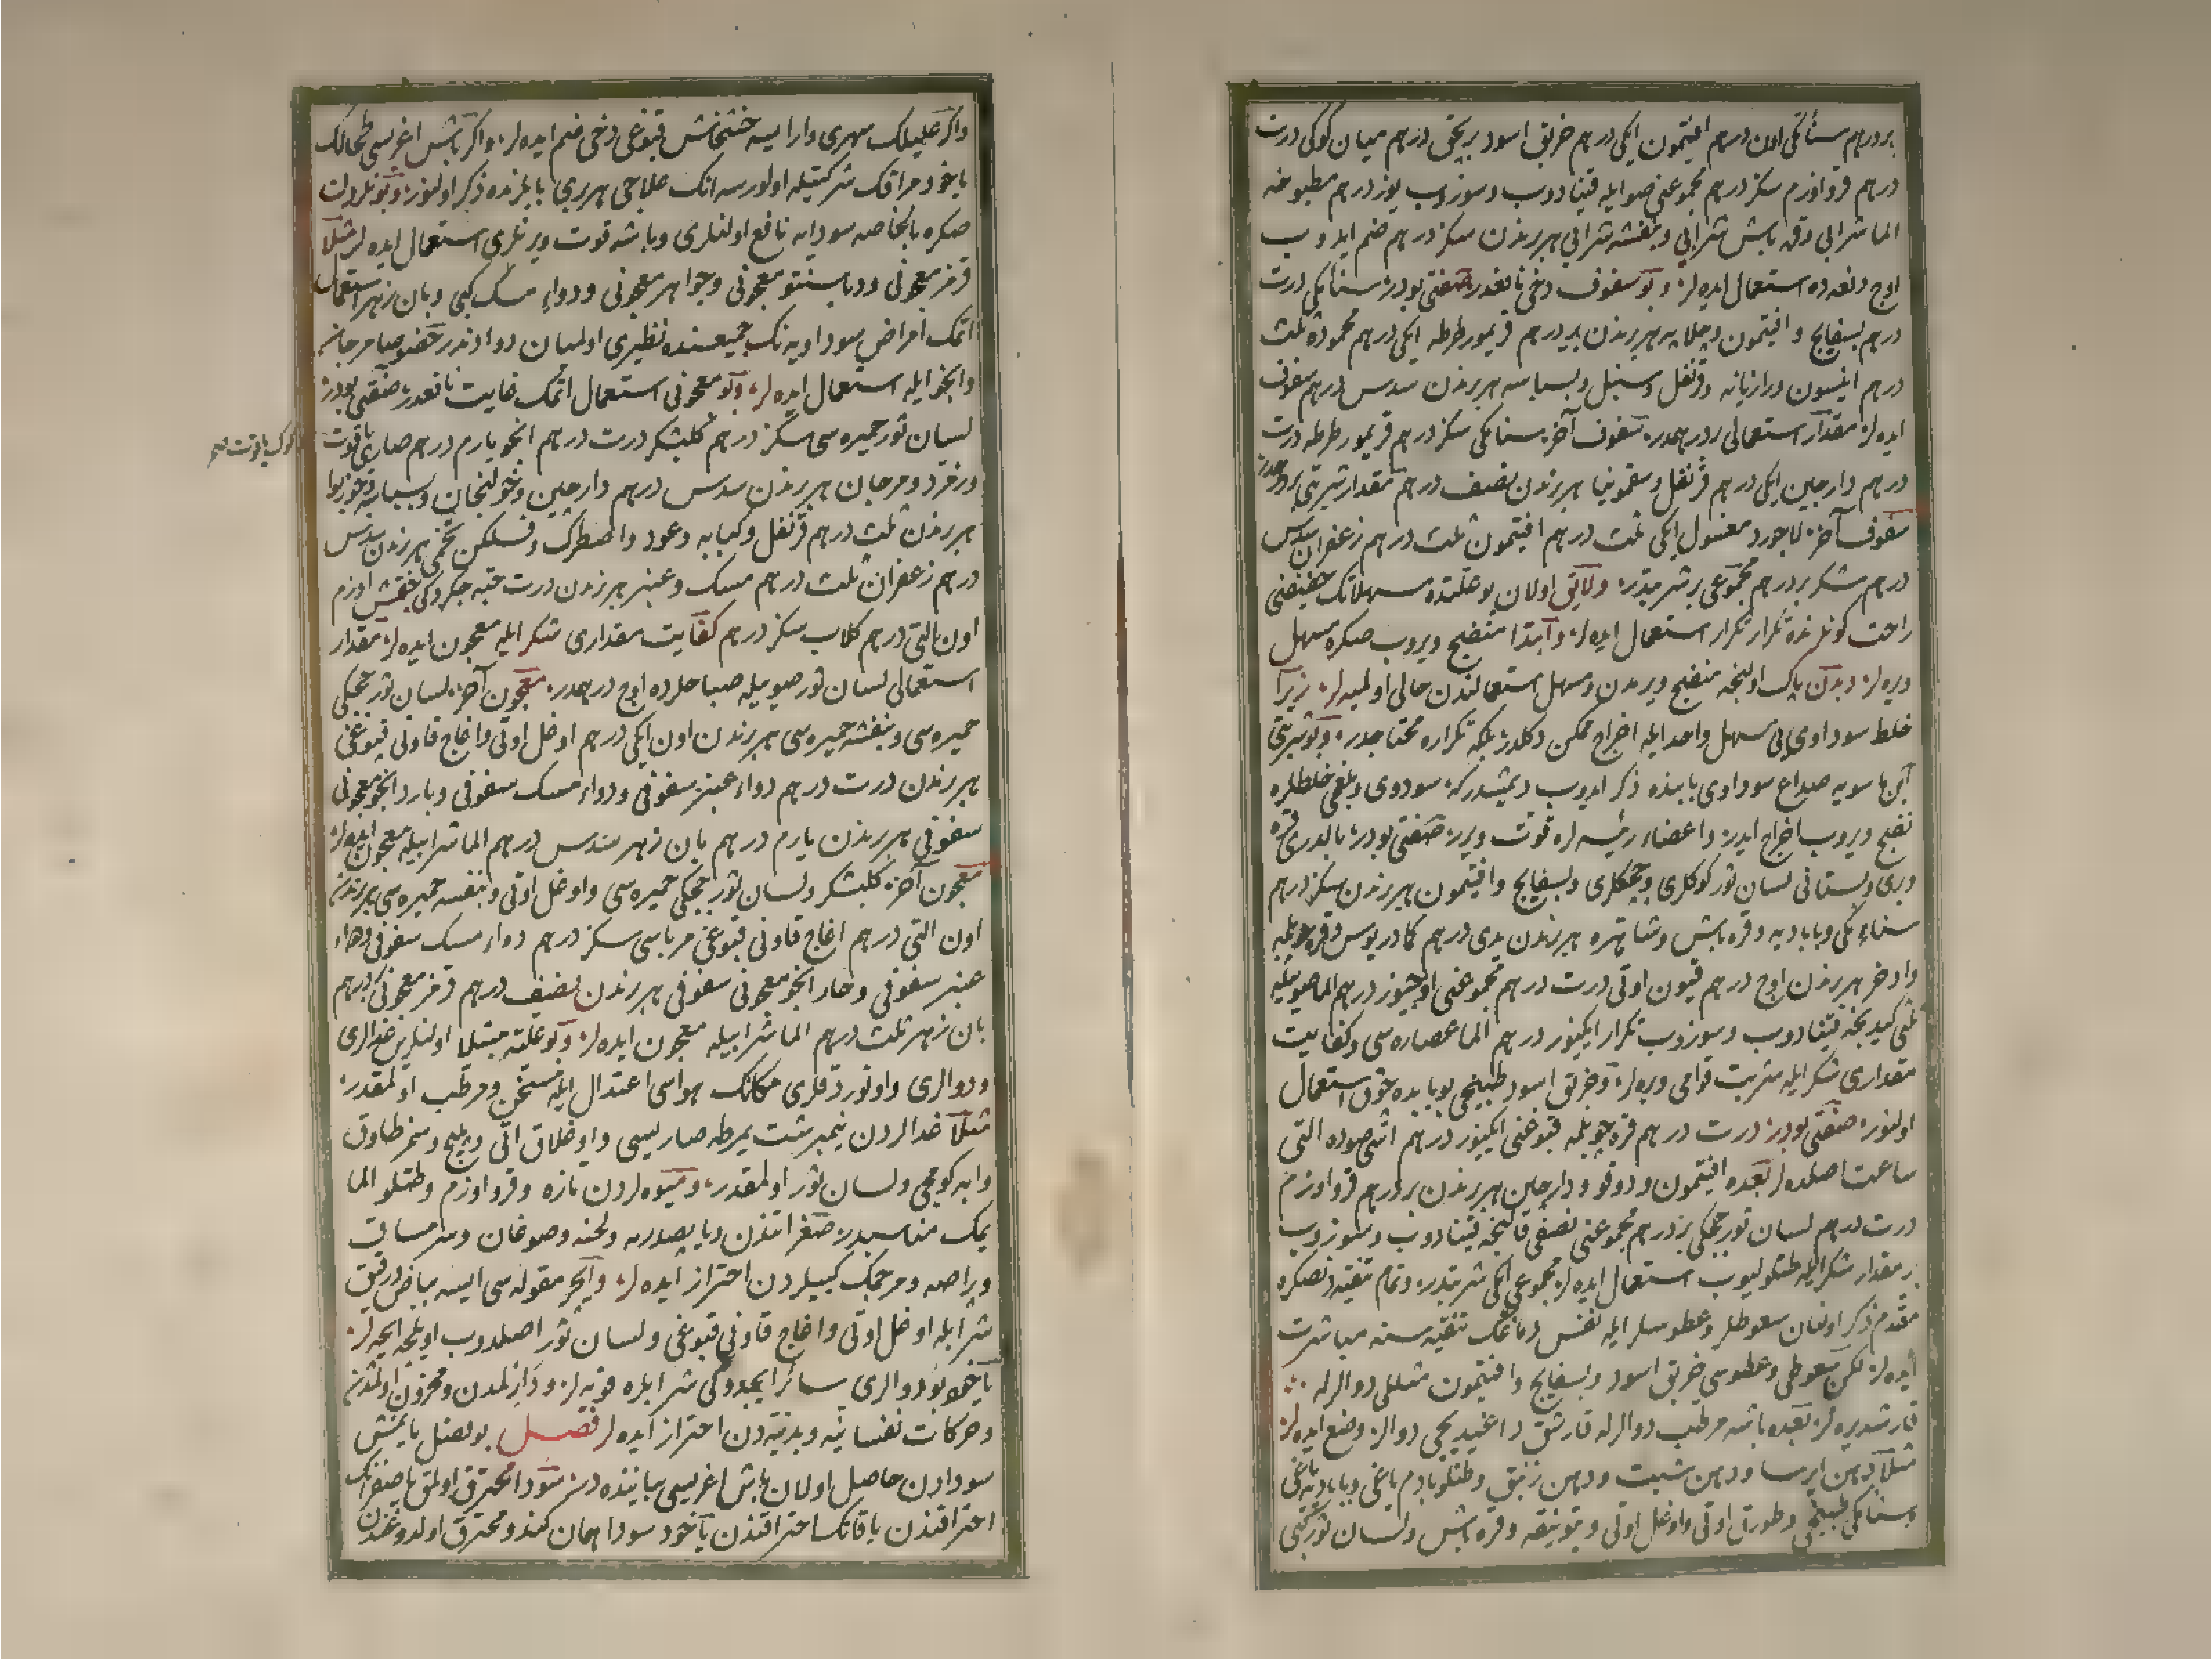 بردرهم سنامكی اون درهم افتیمون ایكی درهم خربق اسود بر بچق درهم میان كوكی درت
درهم قرو اوزم سكز درهم مجموعنی صو ایله قیناددوب و سوزوب یوز درهم مطبوخه
الما شرابی و قره باش شرابی و بنفشه شرابی هر برندن سكز درهم ضم ایدوب
اوچ دفعه ده استعمال ایده لر و بو سفوف دخی نافعدر صنعتی بودر سنامكی درت
درهم بسفایج و افتیمون و جلاپه هر برندن بر درهم قریمور طرطه ایكی درهم محموده ثلث
درهم انیسون و رازیانه و قرنفل و سنبل و بسباسه هر برندن سدس درهم سفوف
ایده لر مقدار استعمالی بر درهمدر سفوف آخر سنامكی سكز درهم قریمور طرطه درت
درهم دارچین ایكی درهم قرنفل و سقمونیا هر برندن نصف درهم مقدار شربتی بر درهمدر
سفوف آخر لاجورد مغسول ایكی ثلث درهم افتیمون ثلث درهم زعفران سدس
درهم شكر بر درهم مجموعی بر شربتدر و لایق اولان بو علتده مسهلاتك خفیفنی
راحت كونلرنده تكرار تكرار استعمال ایده لر و ابتدا منضج ویروب صكره مسهل
ویره لر و بدن پاك اولنجه منضج ویرمدن و مسهل استعمالندن خالی اولمیه لر زیرا
خلط سوداوی یی مسهل واحد ایله اخراج ممكن دكلدر بلكه تكراره محتاجدر و بو شربتی
ابن ماسویه صداع سوداوی بابنده ذكر ایدوب دیمشدر كه سودوی و بلغمی خلطلره
نضج ویروب اخراج ایدر و اعضاء رئیسه لره قوت ویرر صنعتی بودر بالدری قره
و بری و بستانی لسان ثور كوكلری و چچكلری و بسفایج و افتیمون هر برندن سكز درهم
سناء مكی و بابادیه و قره باش و شاهتره هر برندن یدی درهم كمادریوس و قره چوپلمه
و اذخر هر برندن اوچ درهم قیون اوتی درت درهم مجموعنی اوچیوز درهم الما صویله
ثلثی كیدنجه قیناددوب و سوزوب تكرار ایكیوز درهم الما عصاره سی و كفایت
مقداری شكر ایله شربت قوامی ویره لر و خربق اسود طبیخی بو بابده چوق استعمال
اولنور صنعتی بودر درت درهم قره چوپلمه قبوغنی ایكیوز درهم اتسی صوده التی
ساعت اصلده لر بعده افتیمون و دوقو و دارچین هر برندن بر درهم قرو اوزم
درت درهم لسان ثور چچكی بر درهم مجموعنی نصفی قالنجه قیناددوب و سوزوب
بر مقدار شكر ایله طتلولیوب استعمال ایده لر مجموعی ایكی شربتدر و تمام تنقیه دنصكره
مقدم ذكر اولنان سعوطلر و عطوسلر ایله نفس دماغك تنقیه سنه مباشرت
ایده لر لكن سعوطی و عطوسی خربق اسود و بسفایج و افتیمون مثللی دوالرله
قارشدیره لر بعده باشه مرطب دوالرله قارشق داغیدیجی دوالر وضع ایده لر
مثلا دهن ایرسا و دهن شبت و دهن زنبق و طتلو بادم یاغی و بابادیه یاغی
و سنامكی طبیخی و طورق اوتی و اوغل اوتی و بتونیقه و قره باش و لسان ثور كبی
و اكر علیلك سهری وار ایسه خشخاش قبوغی دخی ضم ایده لر و اكر باش اغریسی طحالك
یاخود مراقك شركتیله اولورسه انك علاجی هر بری بابلرنده ذكر اولنور و بونلردن
صكره بالخاصه سودایه نافع اولنلری و باشه قوت ویرنلری استعمال ایده لر مثلا
قرمز معجونی و دیاسنتو معجونی و جواهر معجونی و دواء مسك كبی و بان زهر استعمال
اتمك امراض سوداویه نك جمیعسنده نظیری اولمیان دوادندر خصوصا مرجانه
و انجو ایله استعمال ایده لر و بو معجونی استعمال اتمك غایت نافعدر صنعتی بودر
لسان ثور خمیره سی سكز درهم كلبشكر درت درهم انجو یارم درهم صاری یاقوت
كوك یاقوت
و زمرد و مرجان هر برندن سدس درهم دارچین و خولنجان و بسباسه و جوز بوا
هر برندن ثلث درهم قرنفل و كبابه و عود و اصطرك و فسلكن تخمی هر برندن سدس
درهم زعفران ثلث درهم مسك و عنبر هر برندن درت حبه چكردكی چقمش اوزم
اون التی درهم كلاب سكز درهم كفایت مقداری شكر ایله معجون ایده لر مقدار
استعمالی لسان ثور صویله صباحلرده اوچ درهمدر معجون آخر لسان ثور چچكی
خمیره سی و بنفشه خمیره سی هر برندن اون ایكی درهم اوغل اوتی و اغاج قاونی قبوغی
هر برندن درت درهم دواء عنبر سفوفی و دواء مسك سفوفی و بارد انجو معجونی
سفوفی هر برندن یارم درهم بان زهر سدس درهم الما شرابیله معجون ایده لر
معجون آخر كلبشكر و لسان ثور چچكی خمیره سی و اوغل اوتی و بنفشه خمیره سی هر برندن
اون التی درهم اغاج قاونی قبوغی مرباسی سكز درهم دواء مسك سفوفی و دواء
عنبر سفوفی و حار انجو معجونی سفوفی هر برندن نصف درهم قرمز معجونی بر درهم
بان زهر ثلث درهم الما شرابیله معجون ایده لر و بو علته مبتلا اولنلرك غدالری
و دوالری و اوتوردقلری مكانك هواسی اعتدال ایله مسخن و مرطب اولمقدر
مثلا غدالردن نیمبرشت یمرطه صاریسی و اوغلاق اتی و پلیچ و سمز طاوق
و ابه كومجی و لسان ثور اولمقدر و میوه لردن تازه و قرو اوزم و طتلو الما
یمك مناسبدر صغر اتندن و یاپصدرمه و لحنه و صوغان و سرمساق
و پراصه و مرجمك كبیلردن احتراز ایده لر و ایچر مقوله سی ایسه بیاض رقیق
شرابله اوغل اوتی و اغاج قاونی قبوغی و لسان ثور اصلدوب اویلجه ایچه لر
یاخود بو دوالری سائر ایچدوكی شرابلره قویه لر و دارلمدن و محزون اولمقدن
و حركات نفسانیه و بدنیه دن احتراز ایده لر فصل بو فصل یانمش
سودادن حاصل اولان باش اغریسی بیاننده در سودا محترق اولمق یا صفرانك
احتراقندن یا قانك احتراقندن یاخود سودا همان كندو محترق اولدوغندن